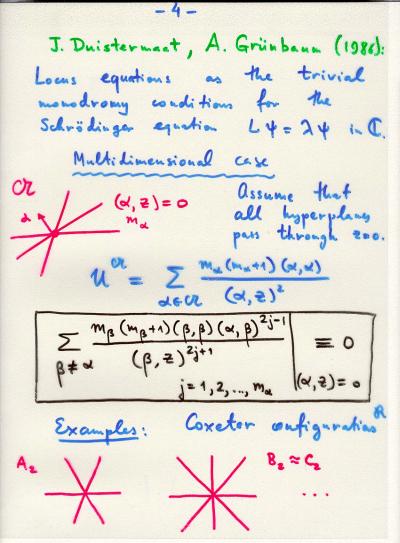 - 4 -
J. Duistermaat, A. Grünbaum (1986):
Locus equations as the trivial
monodromy conditions for the
Schrödinger equation Lψ = λψ in ℂ.
Multidimensional case
𝒪ℓ
α (α, z) = 0
m_α
Assume that
all hyperplanes
pass through z=0.
u^𝒪ℓ = Σ_{α∈𝒪ℓ} m_α(m_α+1)(α,α) / (α,z)²
Σ_{β≠α} m_β(m_β+1)(β,β)(α,β)^{2j-1} / (β,z)^{2j+1} |_{(α,z)=0} ≡ 0
j = 1, 2, ..., m_α
Examples: Coxeter configurations R
A₂ B₂ ≈ C₂
...